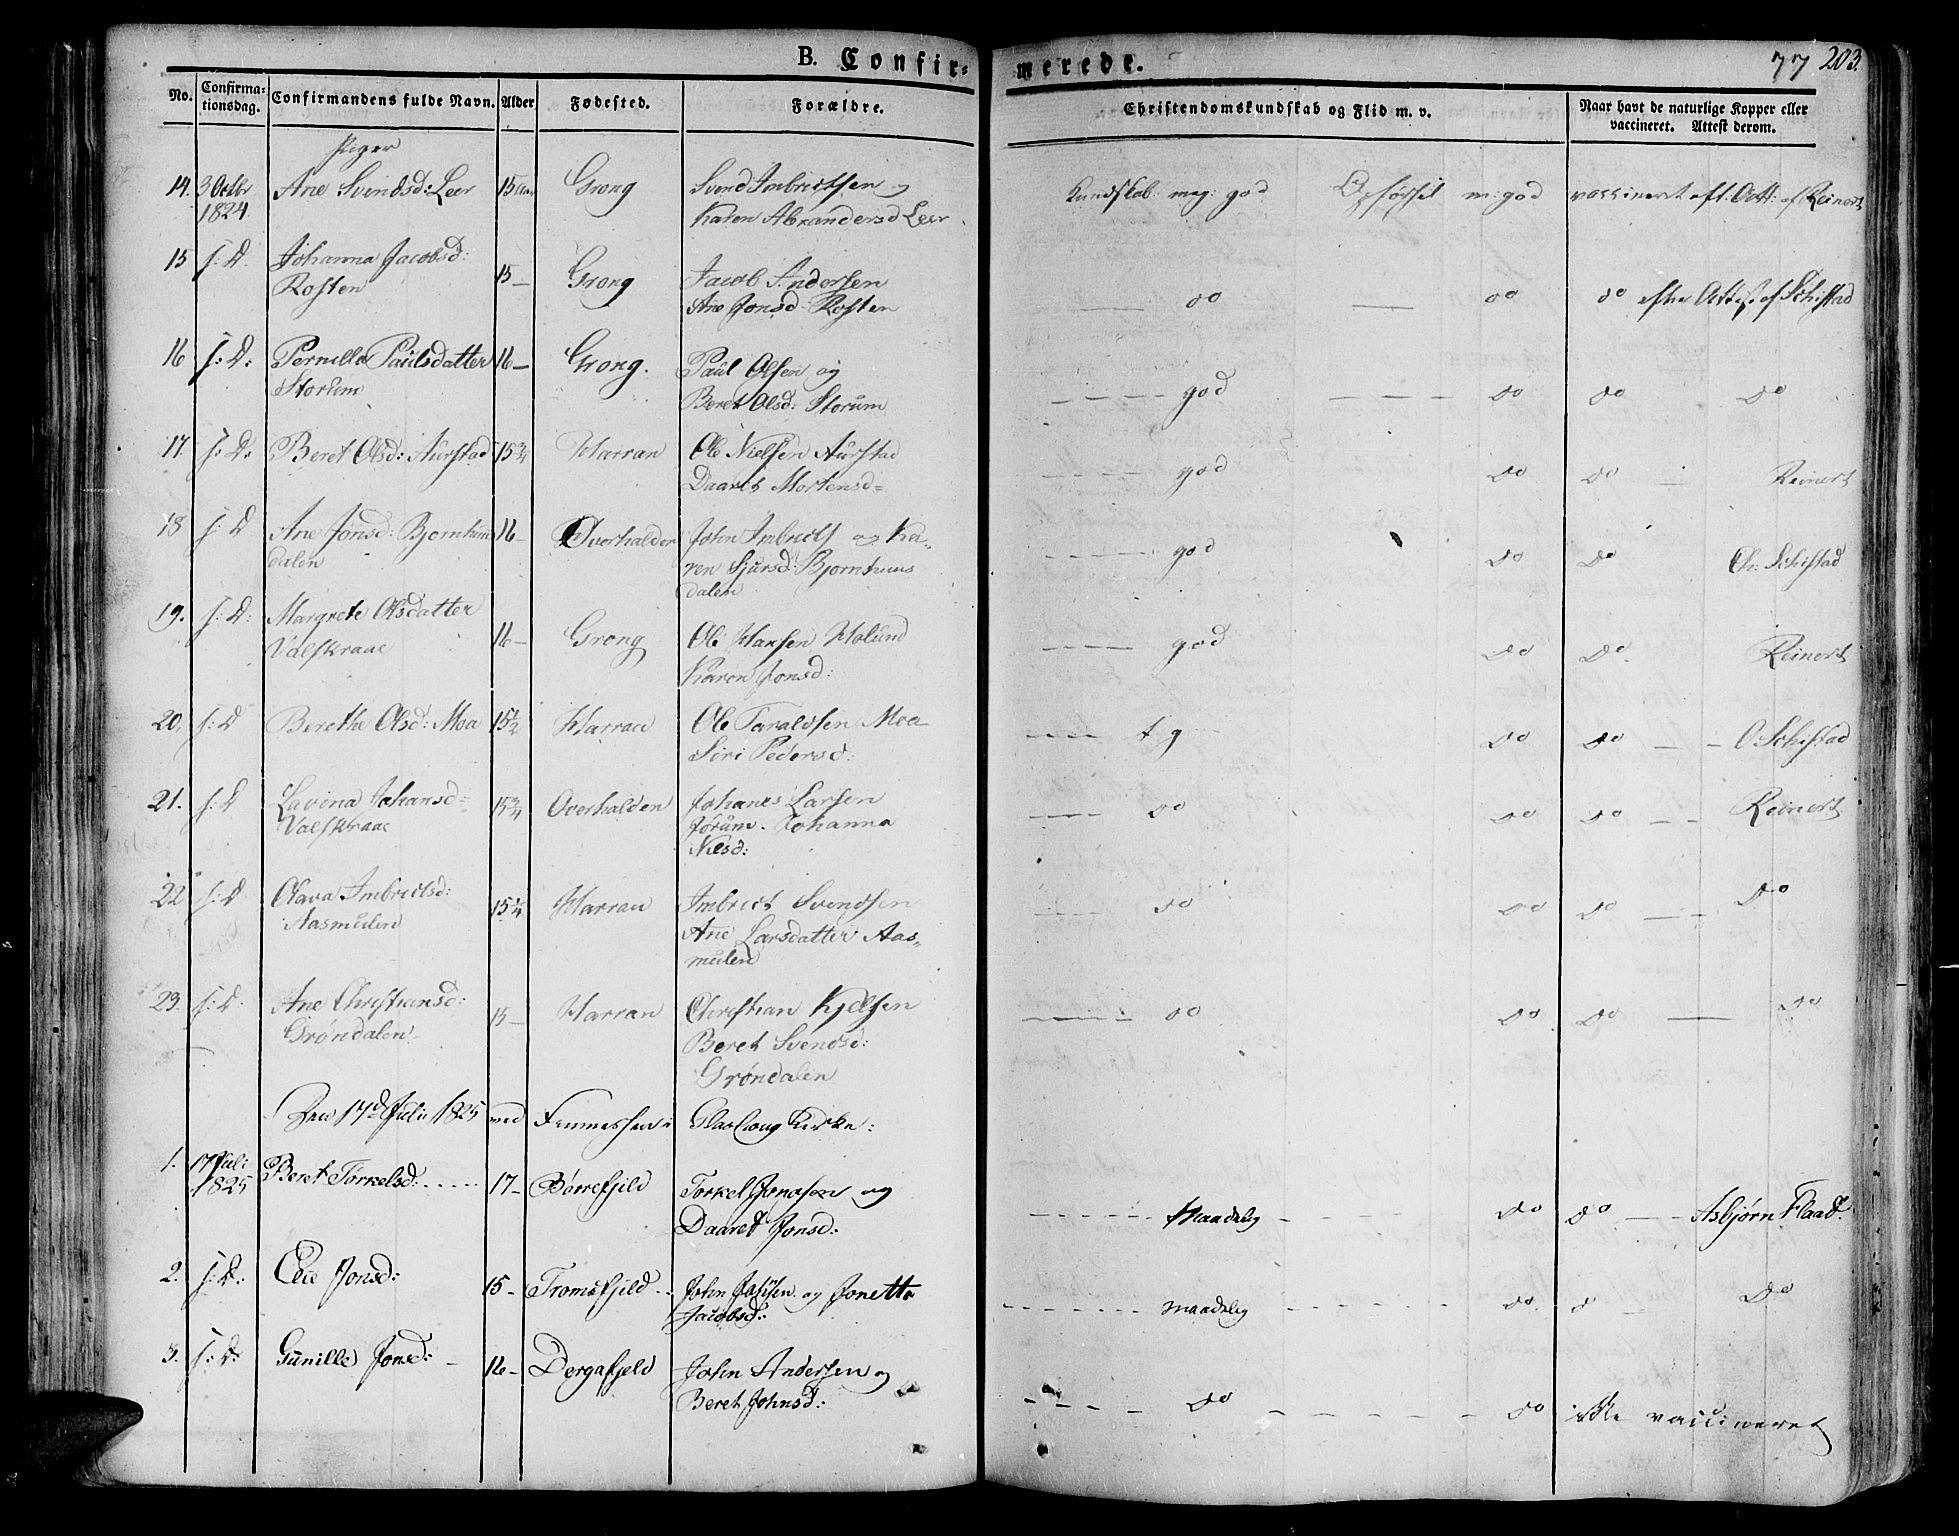 B. Confir-
merede.
77 203.
No. Confirmationsdag. Confirmandens fulde Navn. Alder Fødested. Forældre. Christendomskundskab og Flid m. v. Naar havt de naturlige Kopper eller vaccineret. Attest derom.
Piger
14. 3 Octbr 1824. Ane Svendsd: Leer 15 Aar Grong Svend Imbrictsen og Karen Alexandersd Leer Kundskab: meg: god Opførsel m: god vaccinert eft: Att: af Reinert
15 s: D. Johanna Jacobsd: Rosten 15 — Grong Jacob Andersen Ane Jonsd: Rosten — do — do do efter Attest af Schistad
16 s: D: Pernille Paulsdatter Storum 16 — Grong. Paul Olsen og Beret Olsd: Storum — — — god — — — — do do do
17. s: D: Beret Olsd: Aurstad 15 3/4 Harran Ole Nielsen Aurstad Daaret Mortensd= — — — god do do — Reinert
18 s: D Ane Jonsd: Bjornhuusdalen 16 — Overhalden John Imbrict og Karen Sjursd: Bjornhuusdalen — — — god do do Ch: Schistad
19. s: D: Margrete Olsdatter Valskraae 16 — Grong Ole Hansen Holund Karen Jonsd: — — — god do do. Reinert
20. s: D Berethe Olsd: Moa 15 1/2 Harran Ole Taraldsen Moa Siri Pedersd: — — — t g do do — — O Schistad
21. s: D Lavina Johansd= Valskraae 15 3/4 Overhalden Johanes Larsen Jørum. Johanna Nilsd: do do do — — Reinert
22 s: D Olava Imbrictsd: Aasmulen 15 1/4 Harran Imbrict Svendsen Ane Larsdatter Aasmulen do do do — — Do
23. s: D. Ane Christiansd: Grøndalen 15 — Harran Christian Kjelsen Beret Svendsd: Grøndalen — — — do do do — Do
Den 17d Juli 1825 ved Kirke:
1. 17 Juli 1825 Beret Torkelsd. ..... 17 — Børrefjeld Torkel Jonasen og Daaret Jonsd: — — — — Maadelig — — — — do do — — Asbjørn Flaat.
2. s: D: Jonsd: 15 — Tromsfjeld .. John og Jonetta Jacobsd: — — — — maadelig — — — — do do — Do
3. s: D: Gunille Jonsd: — 16 — Dergafjeld John Andersen og Beret Johnsd: — — — — do — — — — do ikke vaccineret